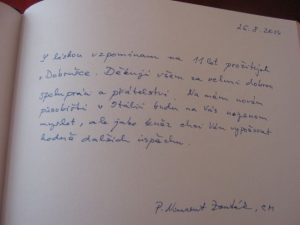 26.8.2014
S láskou vzpomínám na 11 let prožitých
v Dobrušce. Děkuji všem za velmi dobrou
spolupráci a přátelství. Na mém novém
působišti v Itálii budu na Vás nejenom
myslet, ale jako kněz chci Vám vyprošovat
hodně dalších úspěchů.
P. , CM